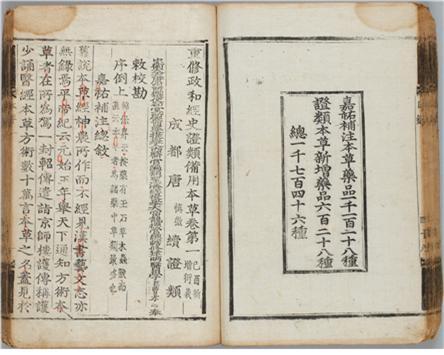 嘉祐補注本草藥品一千一百一十八種
證類本草新增藥品六百二十八種
總一千七百四十六種
重修政和經史證類備用本草卷第一 己酉新增衍義
成都唐 慎微 續證類
敕校勘
序例上
嘉祐補注總敘
舊說本草經神農所作而不經見漢書藝文志亦
無錄焉平帝紀云元始五年舉天下通知方術本
草者在所為駕一封軺傳遣詣京師樓護傳稱護
少誦醫經本草方術數十萬言本草之名蓋見於